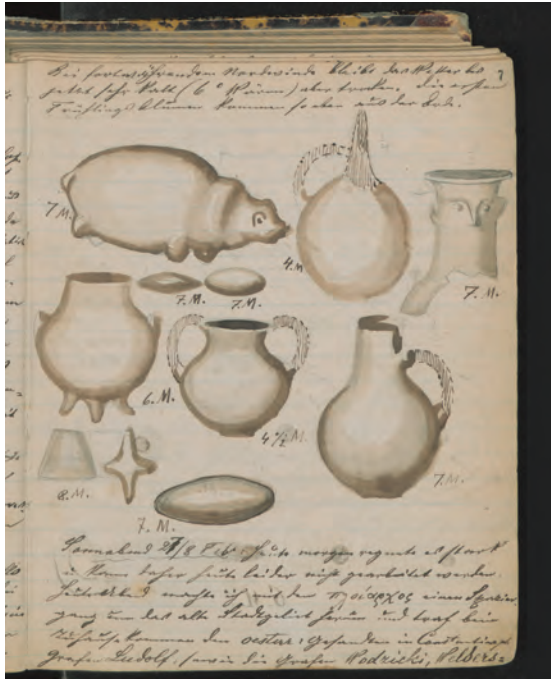 Bei fortwährendem Nordwinde bleibt das Wetter bis 7
jetzt sehr kalt (6° Wärme) aber trocken. Die ersten
Frühlingsblumen kommen soeben aus der Erde.
7 M.
4. M
7. M.
7. M. 7 M.
6. M.
4 1/2 M.
7. M.
8. M.
7. M.
Sonnabend Feb. Heute morgen regnete es stark
u kann daher heute leider nicht gearbeitet werden.
Heute Abend machte ich mit dem einen Spazier
gang um das alte Stadtgebiet herum und traf beim
Zuhausekommen den Gesandten in
Grafen Ludolf, sowie die Grafen Wodzicki,